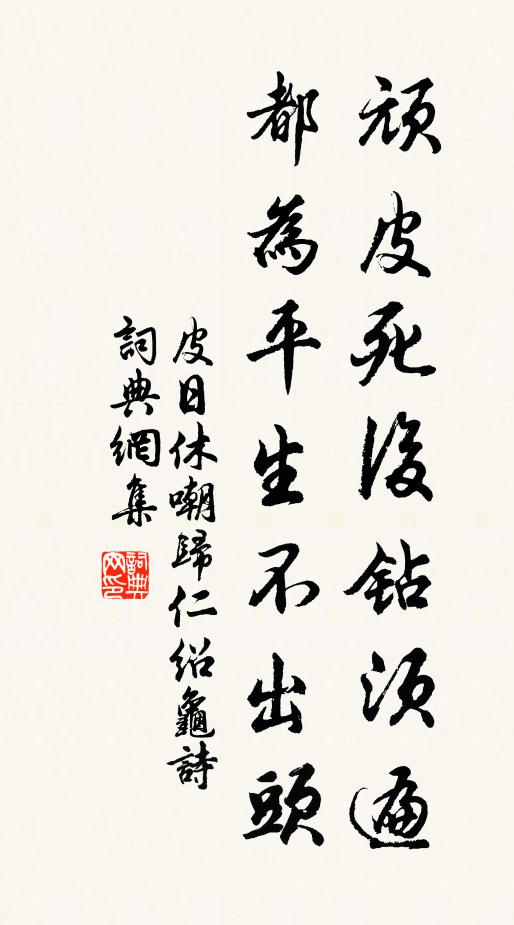 頑皮死後鉆須遍
都為平生不出頭
皮日休嘲歸仁紹龜詩
詞典網集
詞典
网印